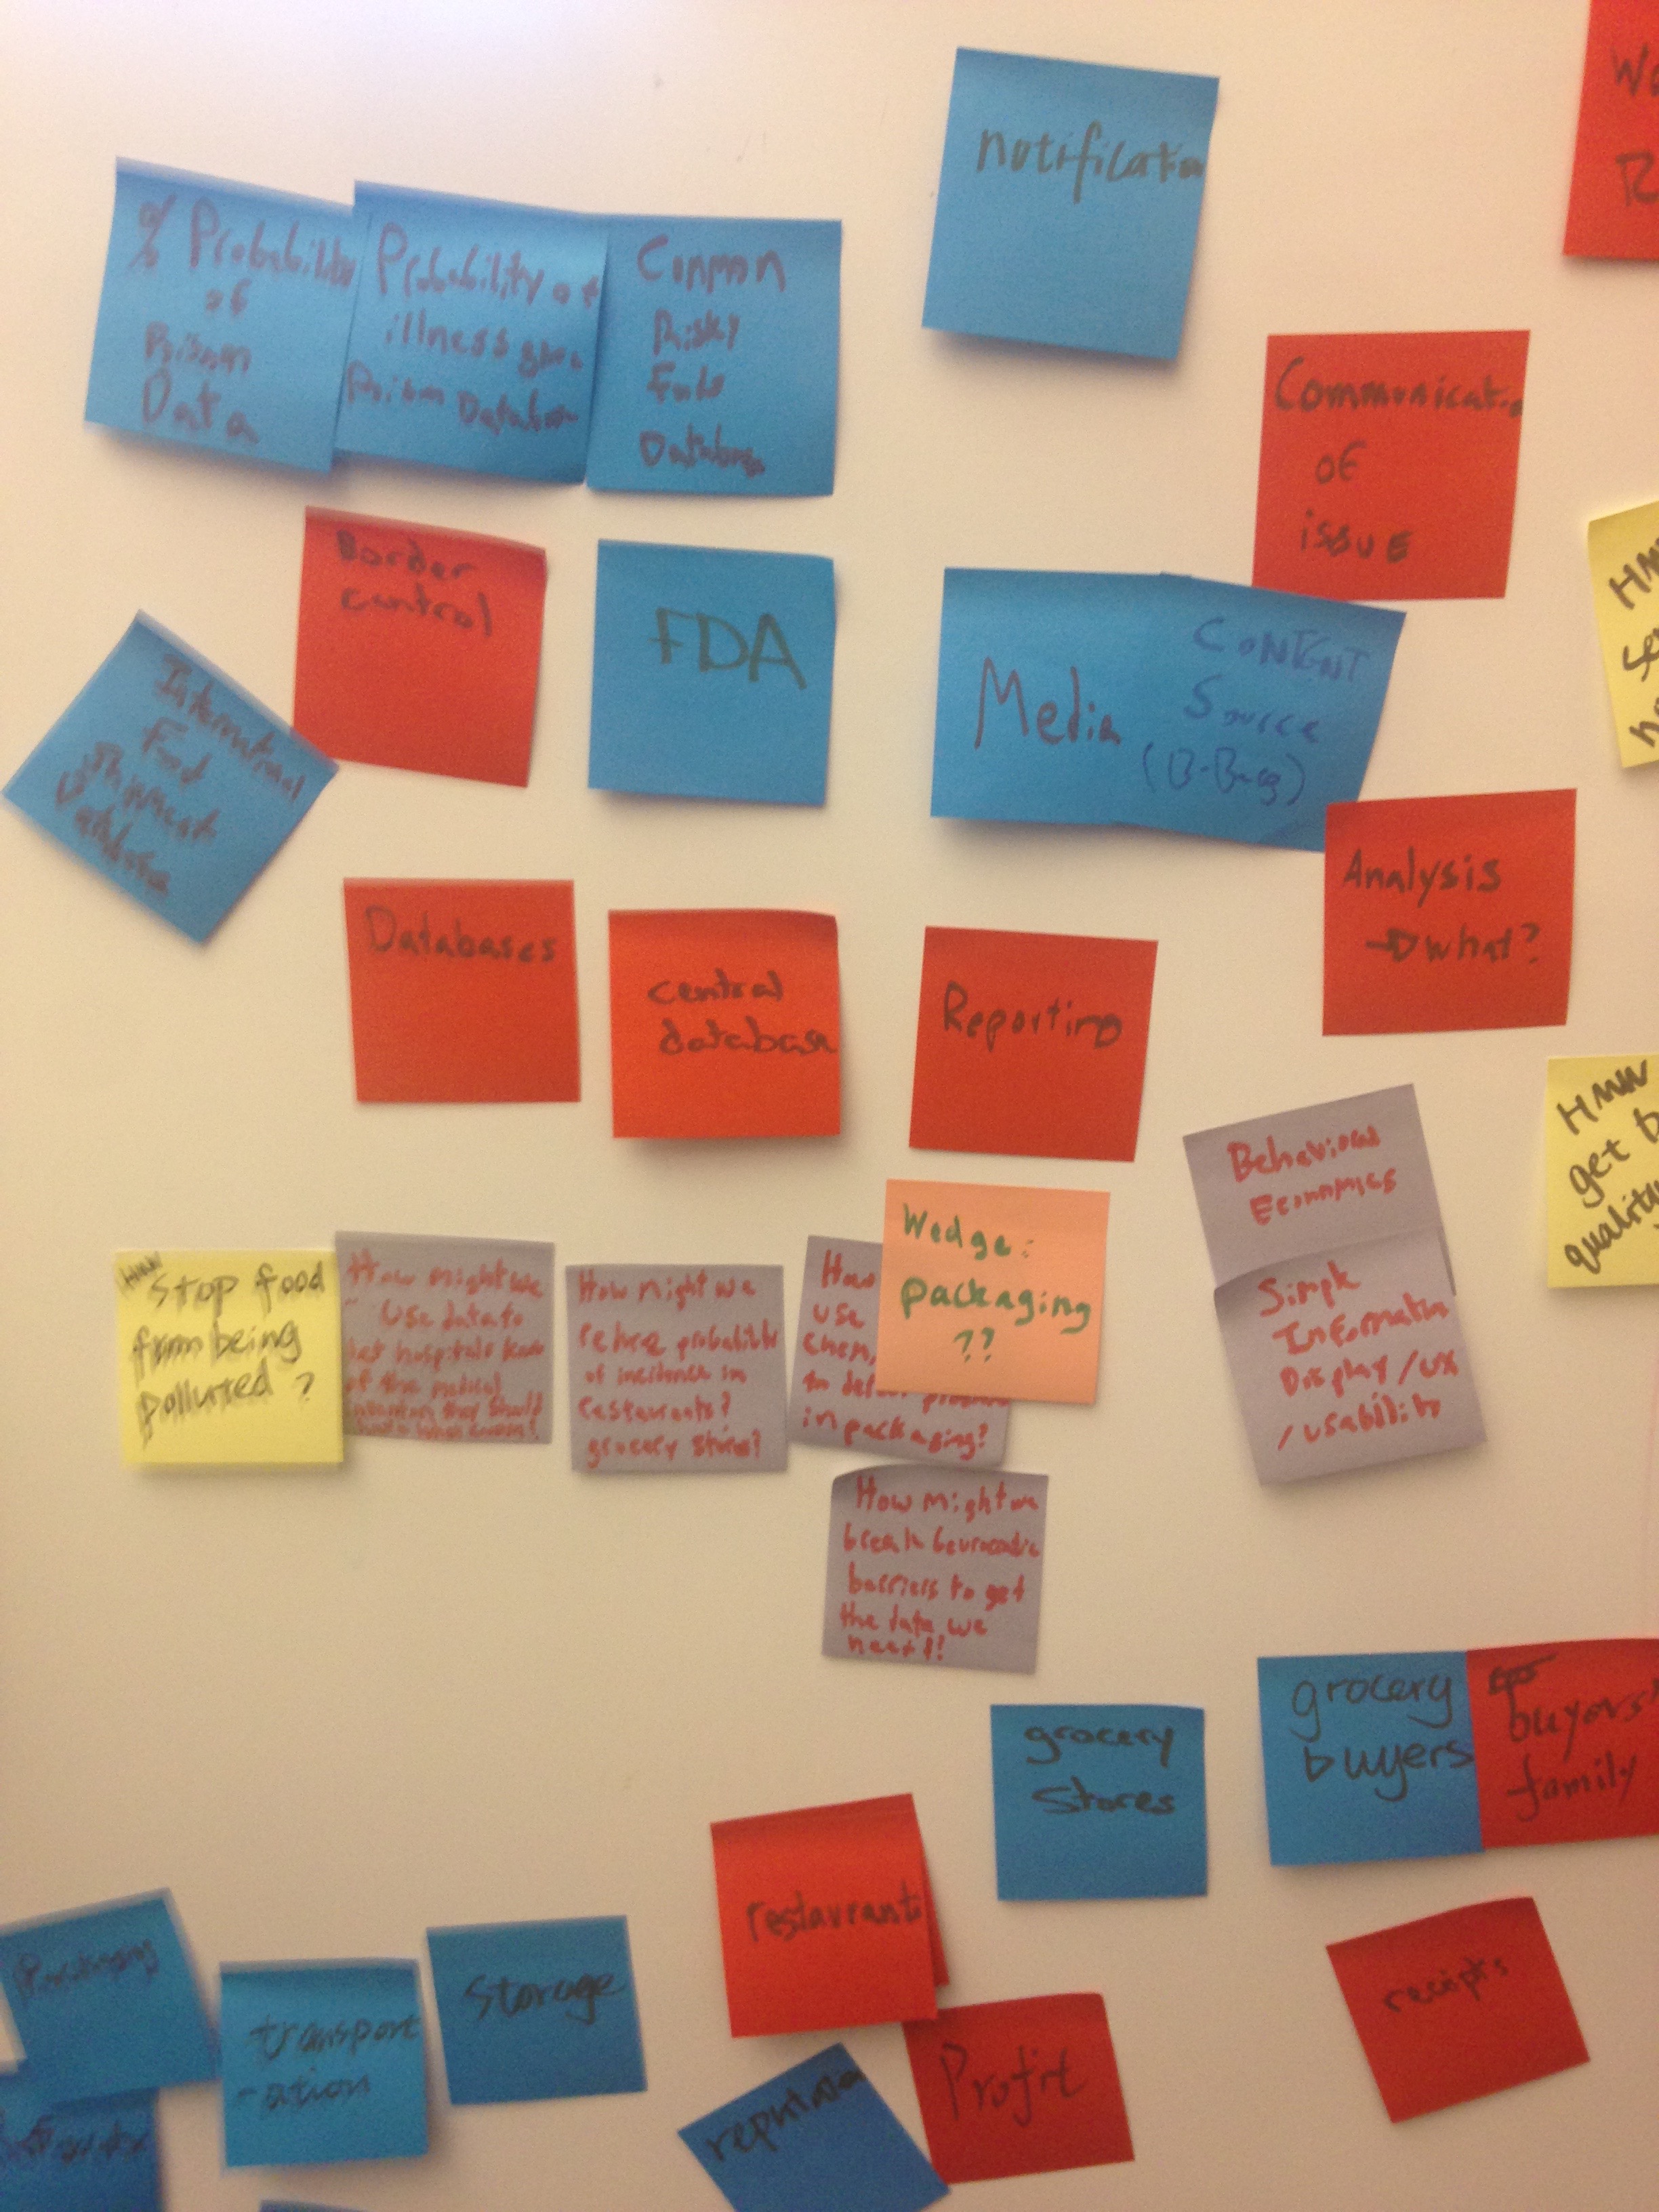 notification
% Probability
of
Poison
Data
Probability of
illness given
Poison Database
Common
Risky
Foods
Database
Communication
of
issue
Border
control
FDA
Media
CONTENT
Source
International
Food
Shipment
Database
Analysis
→ what?
Databases
central
database
Reporting
HMW
get b
quality
Behavioral
Economics
Simple
Information
Display/UX
/usability
Wedge:
packaging
??
HMW
Stop food
from being
polluted?
How might we
use data to
let hospitals know
of the medical
they should
How might we
reduce probability
of incidence in
restaurants?
grocery stores?
How
use
chem
to
in packaging?
How might we
break beurocratic
barriers to get
the data we
need?
grocery
stores
grocery
buyers
buyers'
family
restaurant
receipts
Processing
transport
-ation
storage
Profit
reputation